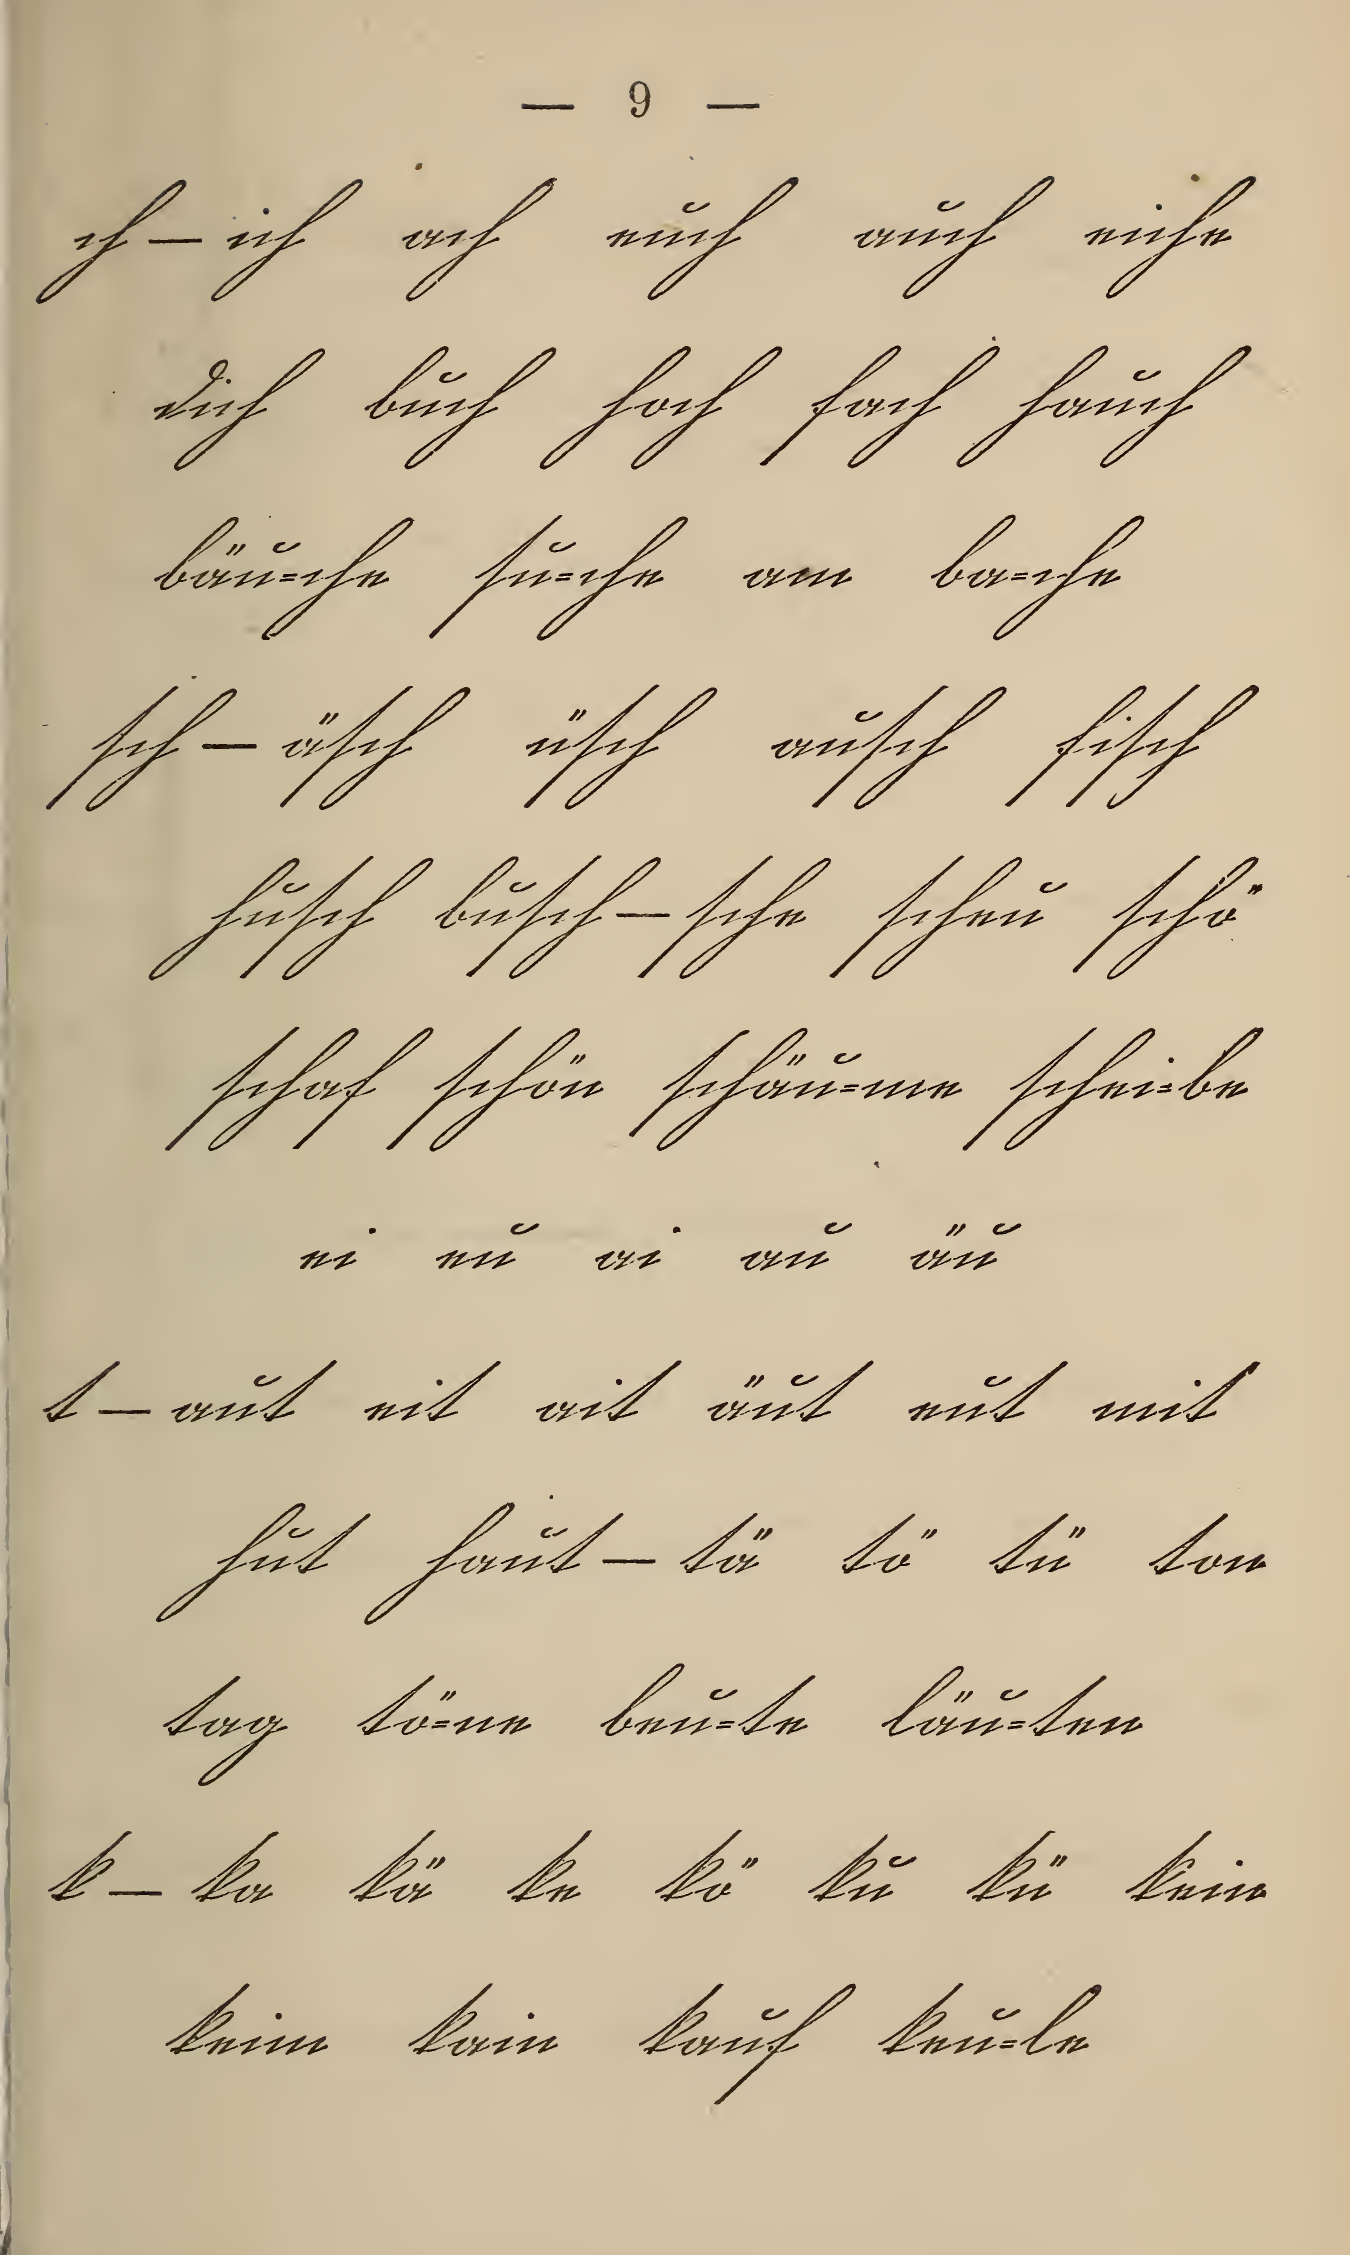 — 9 —
ch — ich ach euch auch eiche
dich buch hoch fach hauch
bäu=che su=che am ba=che
sch — äsch üsch ausch fisch
husch busch — sche scheu schö
schaf schön schäu=me schei=be
ei eu ai au äu
t — aut eit ait äut eut mit
hut haut — tä tö tü ton
tag tö=ne beu=te läu=ten
k — ka kä ke kö ku kü kein
keim kain kauf keu=le